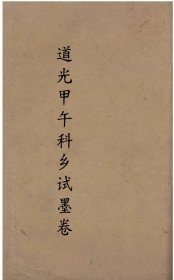 道光甲午科乡试墨卷